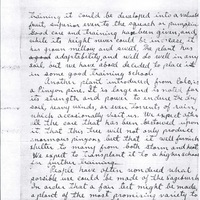 training it could be developed into a valuable
fruit superior even to the squash or pumpkin.
Good care and training has been given, and
while its height never could be increased it
has grown mellow and swell. The plant has
a good adaptability, and will do well in any
soil but we have decided to place it
in some good training school.
Another plant introduced from Colorado is
a Pinyon pine. It is large and is noted for
its strength and power to endure the
soil, heavy winds, or even torrents of rain
which occasionally visit us. We expect after
all the care that has been bestowed upon
it that this tree will not only produce
enormous pinyons but that it will furnish
shelter to many from both storm and heat.
We expect to transplant it to a higher school
in further training.
People have often wondered what
possible use could be made of the
In order that a fair test might be made,
a plant of the most promising variety to